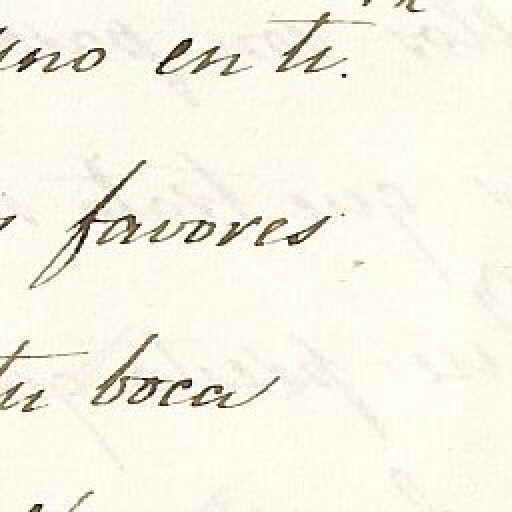 uno en ti.
favores
tu boca